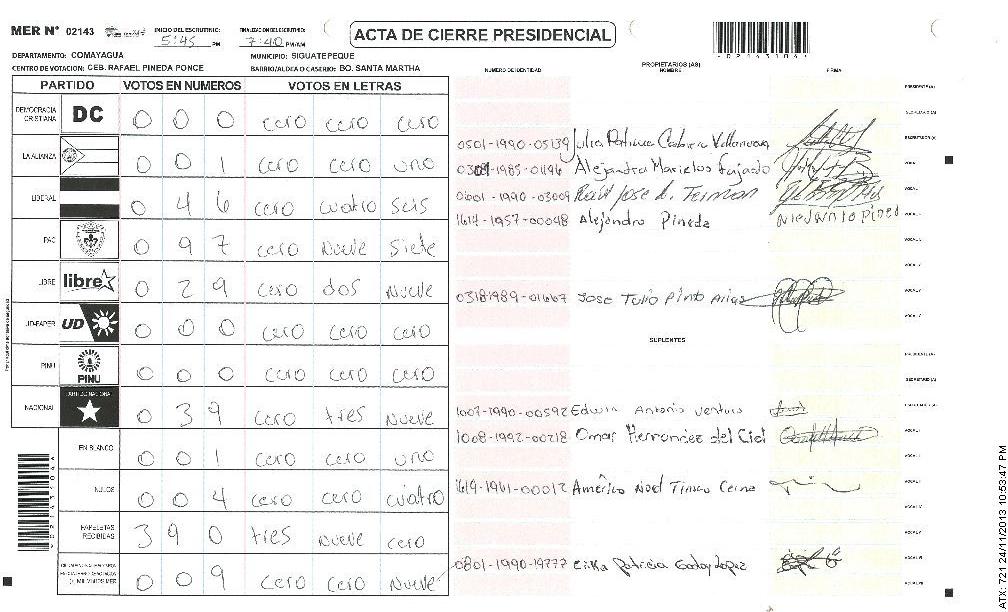 MER Nº 02143 INICIO DEL ESCRUTINIO: 5:45 PM FINALIZACION DEL ESCRUTINIO: 7:40 PM/AM
ACTA DE CIERRE PRESIDENCIAL
DEPARTAMENTO: COMAYAGUA MUNICIPIO: SIGUATEPEQUE
CENTRO DE VOTACION: CEB. RAFAEL PINEDA PONCE BARRIO/ALDEA O CASERIO: BO. SANTA MARTHA
PARTIDO VOTOS EN NUMEROS VOTOS EN LETRAS
DEMOCRACIA CRISTIANA DC 0 0 0 cero cero cero
LA ALIANZA 0 0 1 cero cero uno
LIBERAL 0 4 6 cero cuatro seis
PAC 0 9 7 cero nueve siete
LIBRE libre 0 2 9 cero dos nueve
UD-FAPER UD 0 0 0 cero cero cero
PINU PINU 0 0 0 cero cero cero
NACIONAL PARTIDO NACIONAL 0 3 9 cero tres nueve
EN BLANCO 0 0 1 cero cero uno
NULOS 0 0 4 cero cero cuatro
PAPELETAS RECIBIDAS 3 9 0 tres nueve cero
0 0 9 cero cero nueve
NUMERO DE IDENTIDAD PROPIETARIOS (AS) NOMBRE FIRMA
PRESIDENTE (A)
SECRETARIO (A)
0501-1990-05139 Julia Patricia Villanueva ESCRUTADOR (A)
Alejandra Marielos Fajardo
-1990-03009 Raúl Jose
1614-1957-00048 Alejandro Pineda
0318 1989-01667 Jose Tulio Pinto Arias
SUPLENTES
PRESIDENTE (A)
SECRETARIO (A)
1007-1990-00592 Edwin Antonio Ventura
1008-1992-00218 Omar Hernandez del Cid
1619-1961-00012 Américo Noel
0801-1990-19777 Erika Patricia Godoy Lopez
ATX: 721 24/11/2013 10:53:47 PM